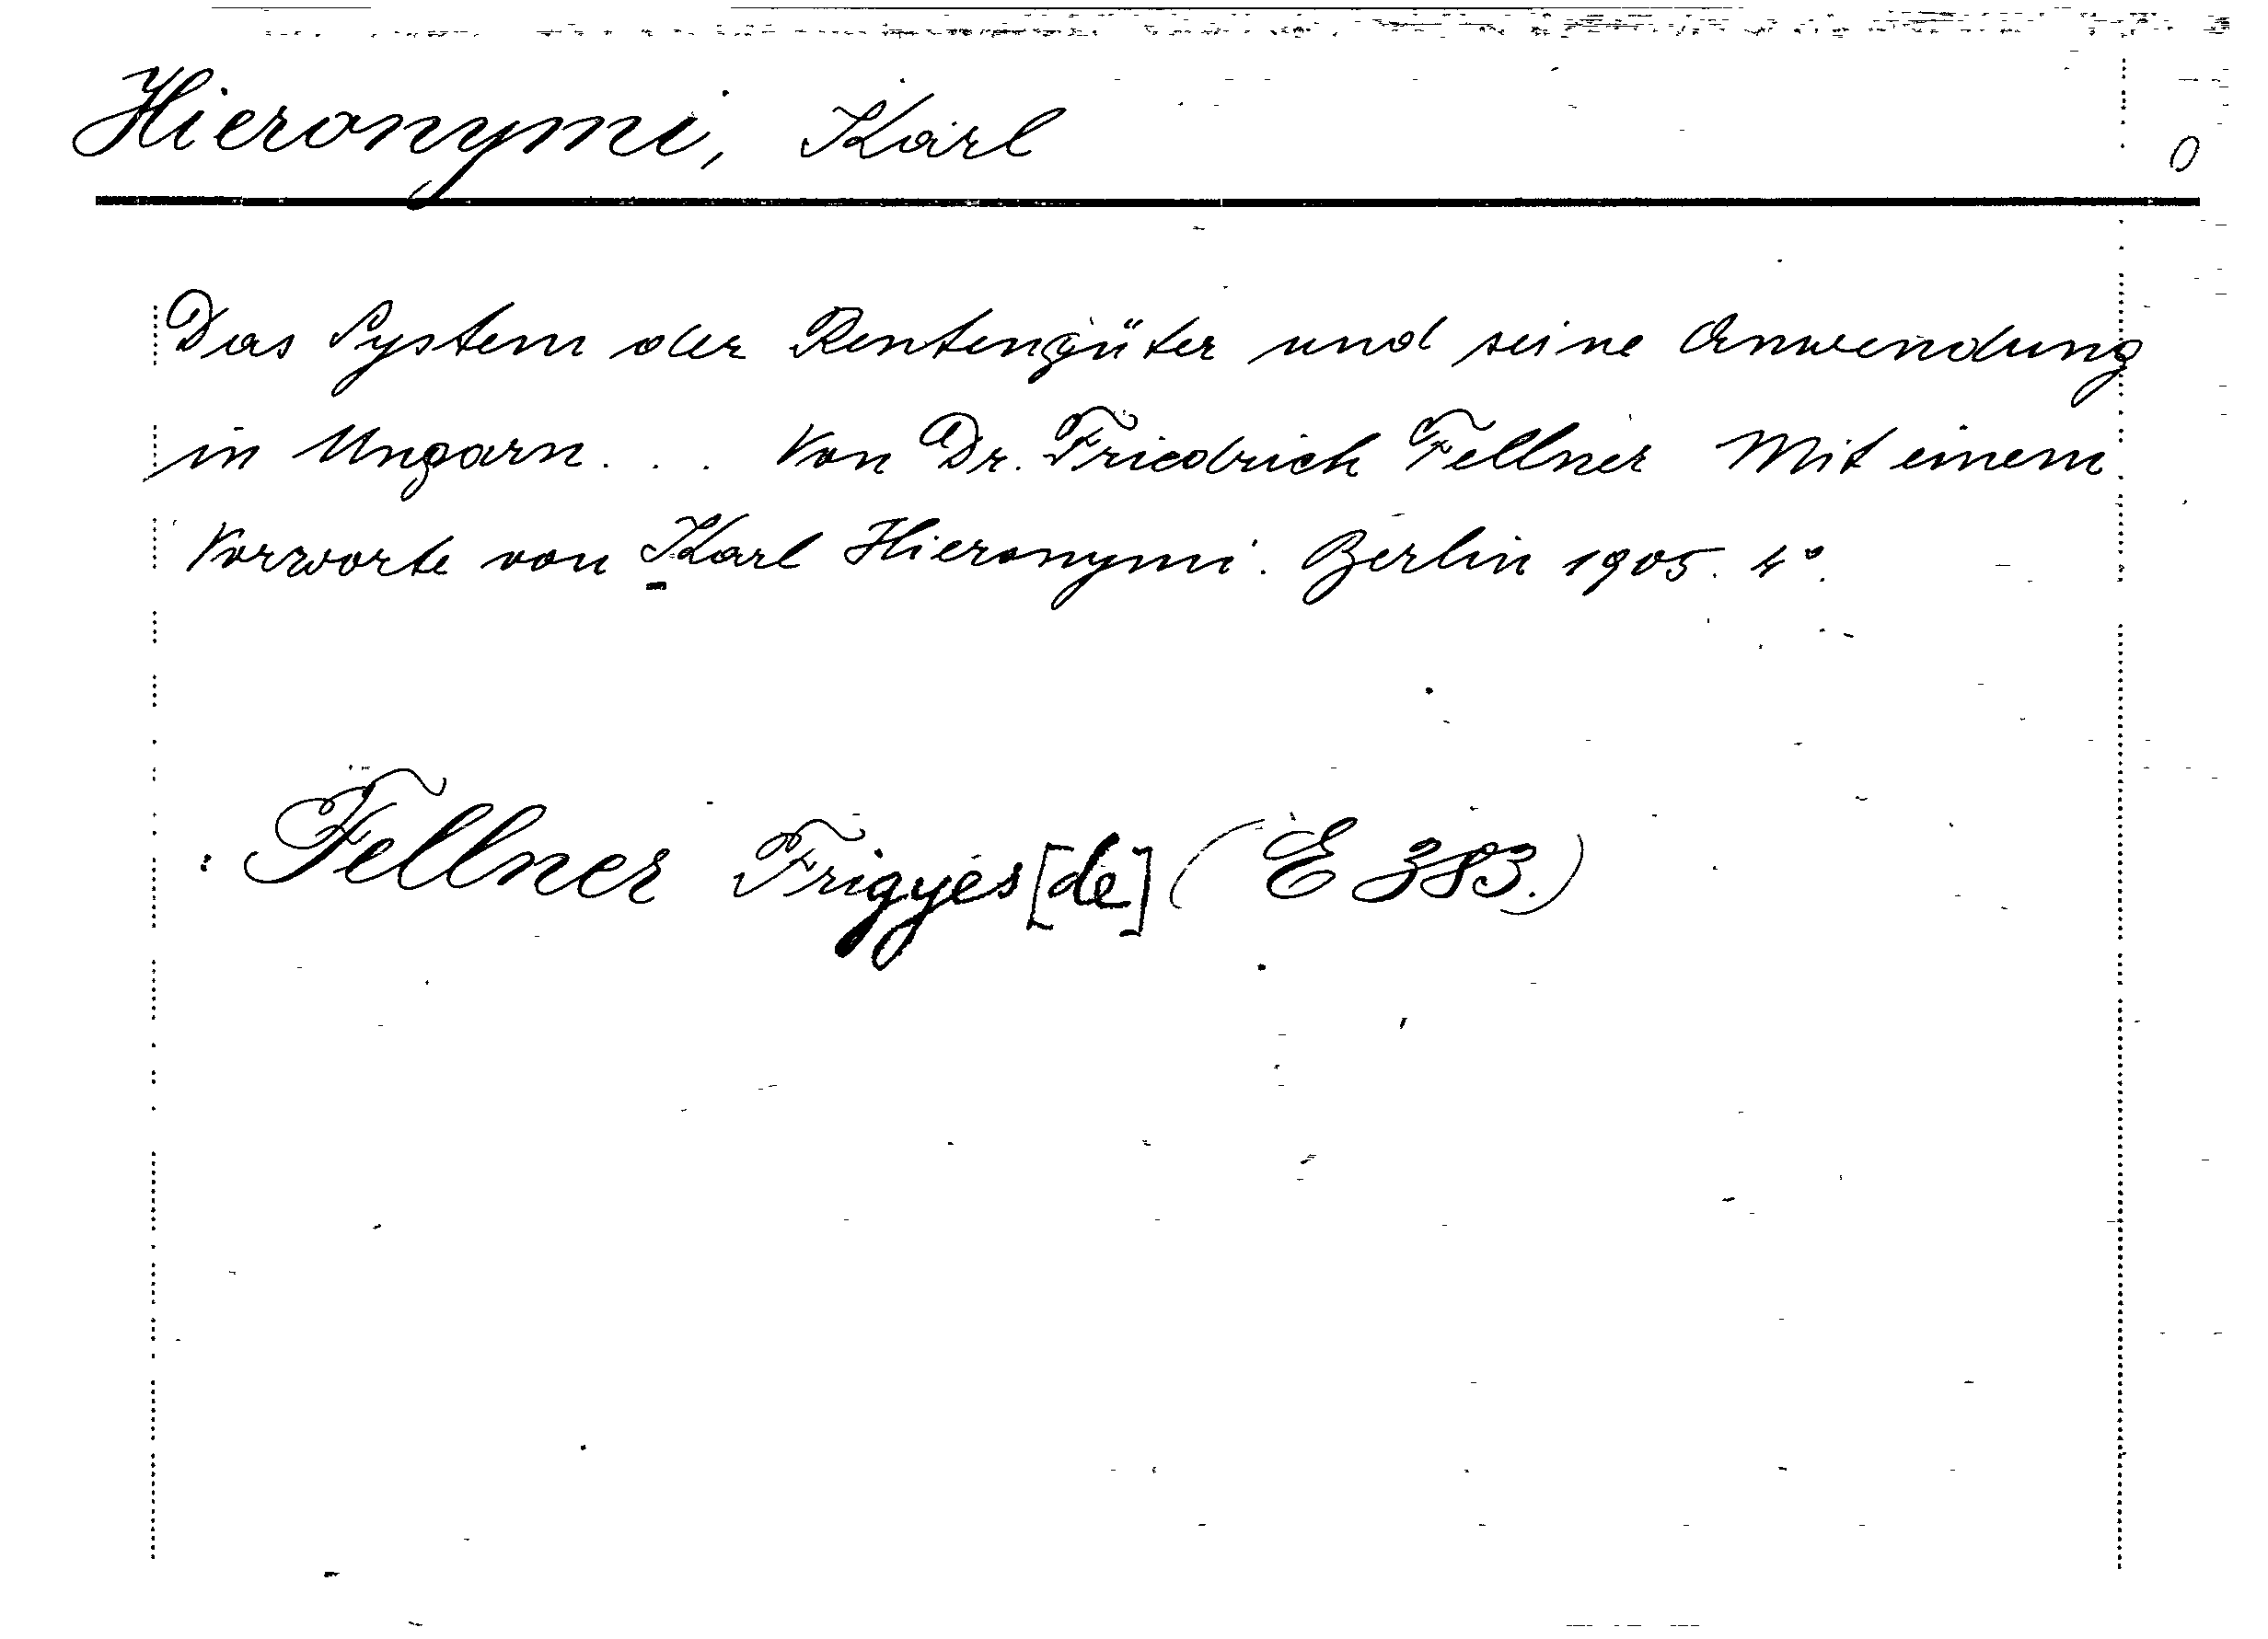 Hieronymi, Karl 0
Das System der Rentengüter und seine Anwendung
in Ungarn. . . Von Dr. Friedrich Fellner Mit einem
Vorworte von Karl Hieronymi. Berlin 1905. 4°.
: Fellner Frigyes [de] (E 383.)